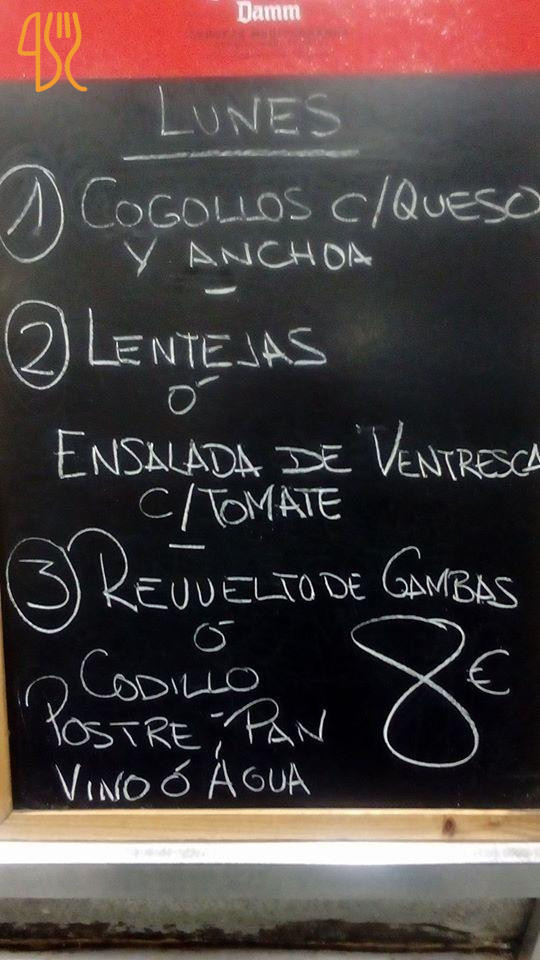 Damm
LUNES
1 COGOLLOS C/QUESO
Y ANCHOA
2 LENTEJAS
Ó
ENSALADA DE VENTRESCA
C/TOMATE
3 REVUELTO DE GAMBAS
Ó
CODILLO
8€
POSTRE, PAN
VINO Ó AGUA